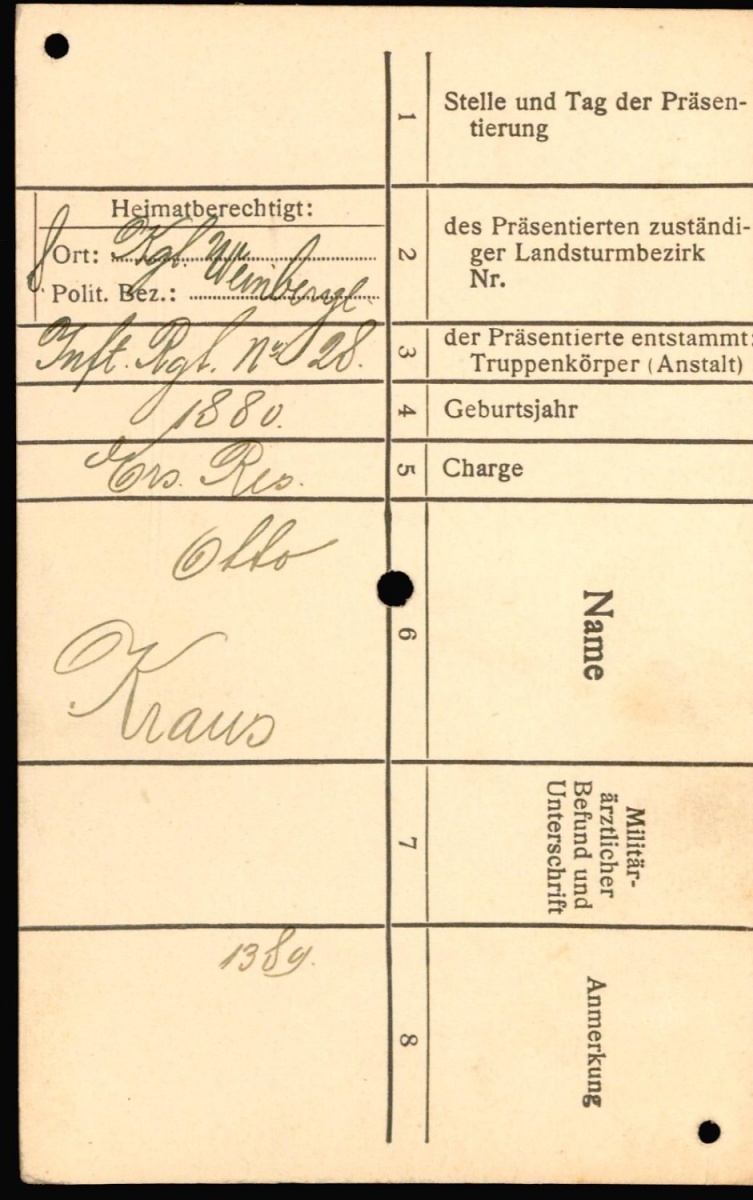 1
Stelle und Tag der Präsen-
tierung
Heimatberechtigt:
Ort: Kgl. Weinberge
Polit. Bez.:
2
des Präsentierten zuständi-
ger Landsturmbezirk
Nr.
Inft. Rgt. No 28.
3
der Präsentierte entstammt:
Truppenkörper (Anstalt)
1880.
4
Geburtsjahr
Ers. Res.
5
Charge
Otto
Kraus
6
Name
7
Militär-
ärztlicher
Befund und
Unterschrift
1389.
8
Anmerkung